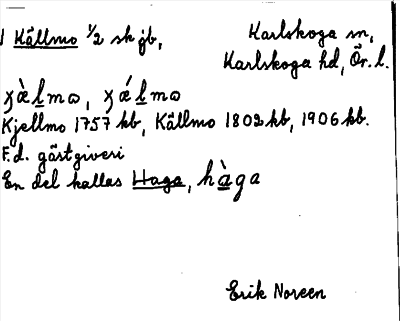 1 Källmo 1/2 sk jb, Karlskoga sn,
Karlskoga hd, Ör. l.
Kjellmo 1757 kb, Källmo 1802 kb, 1906 kb.
F.d. gästgiveri
En del kallas Haga, hàga
Erik Noreen